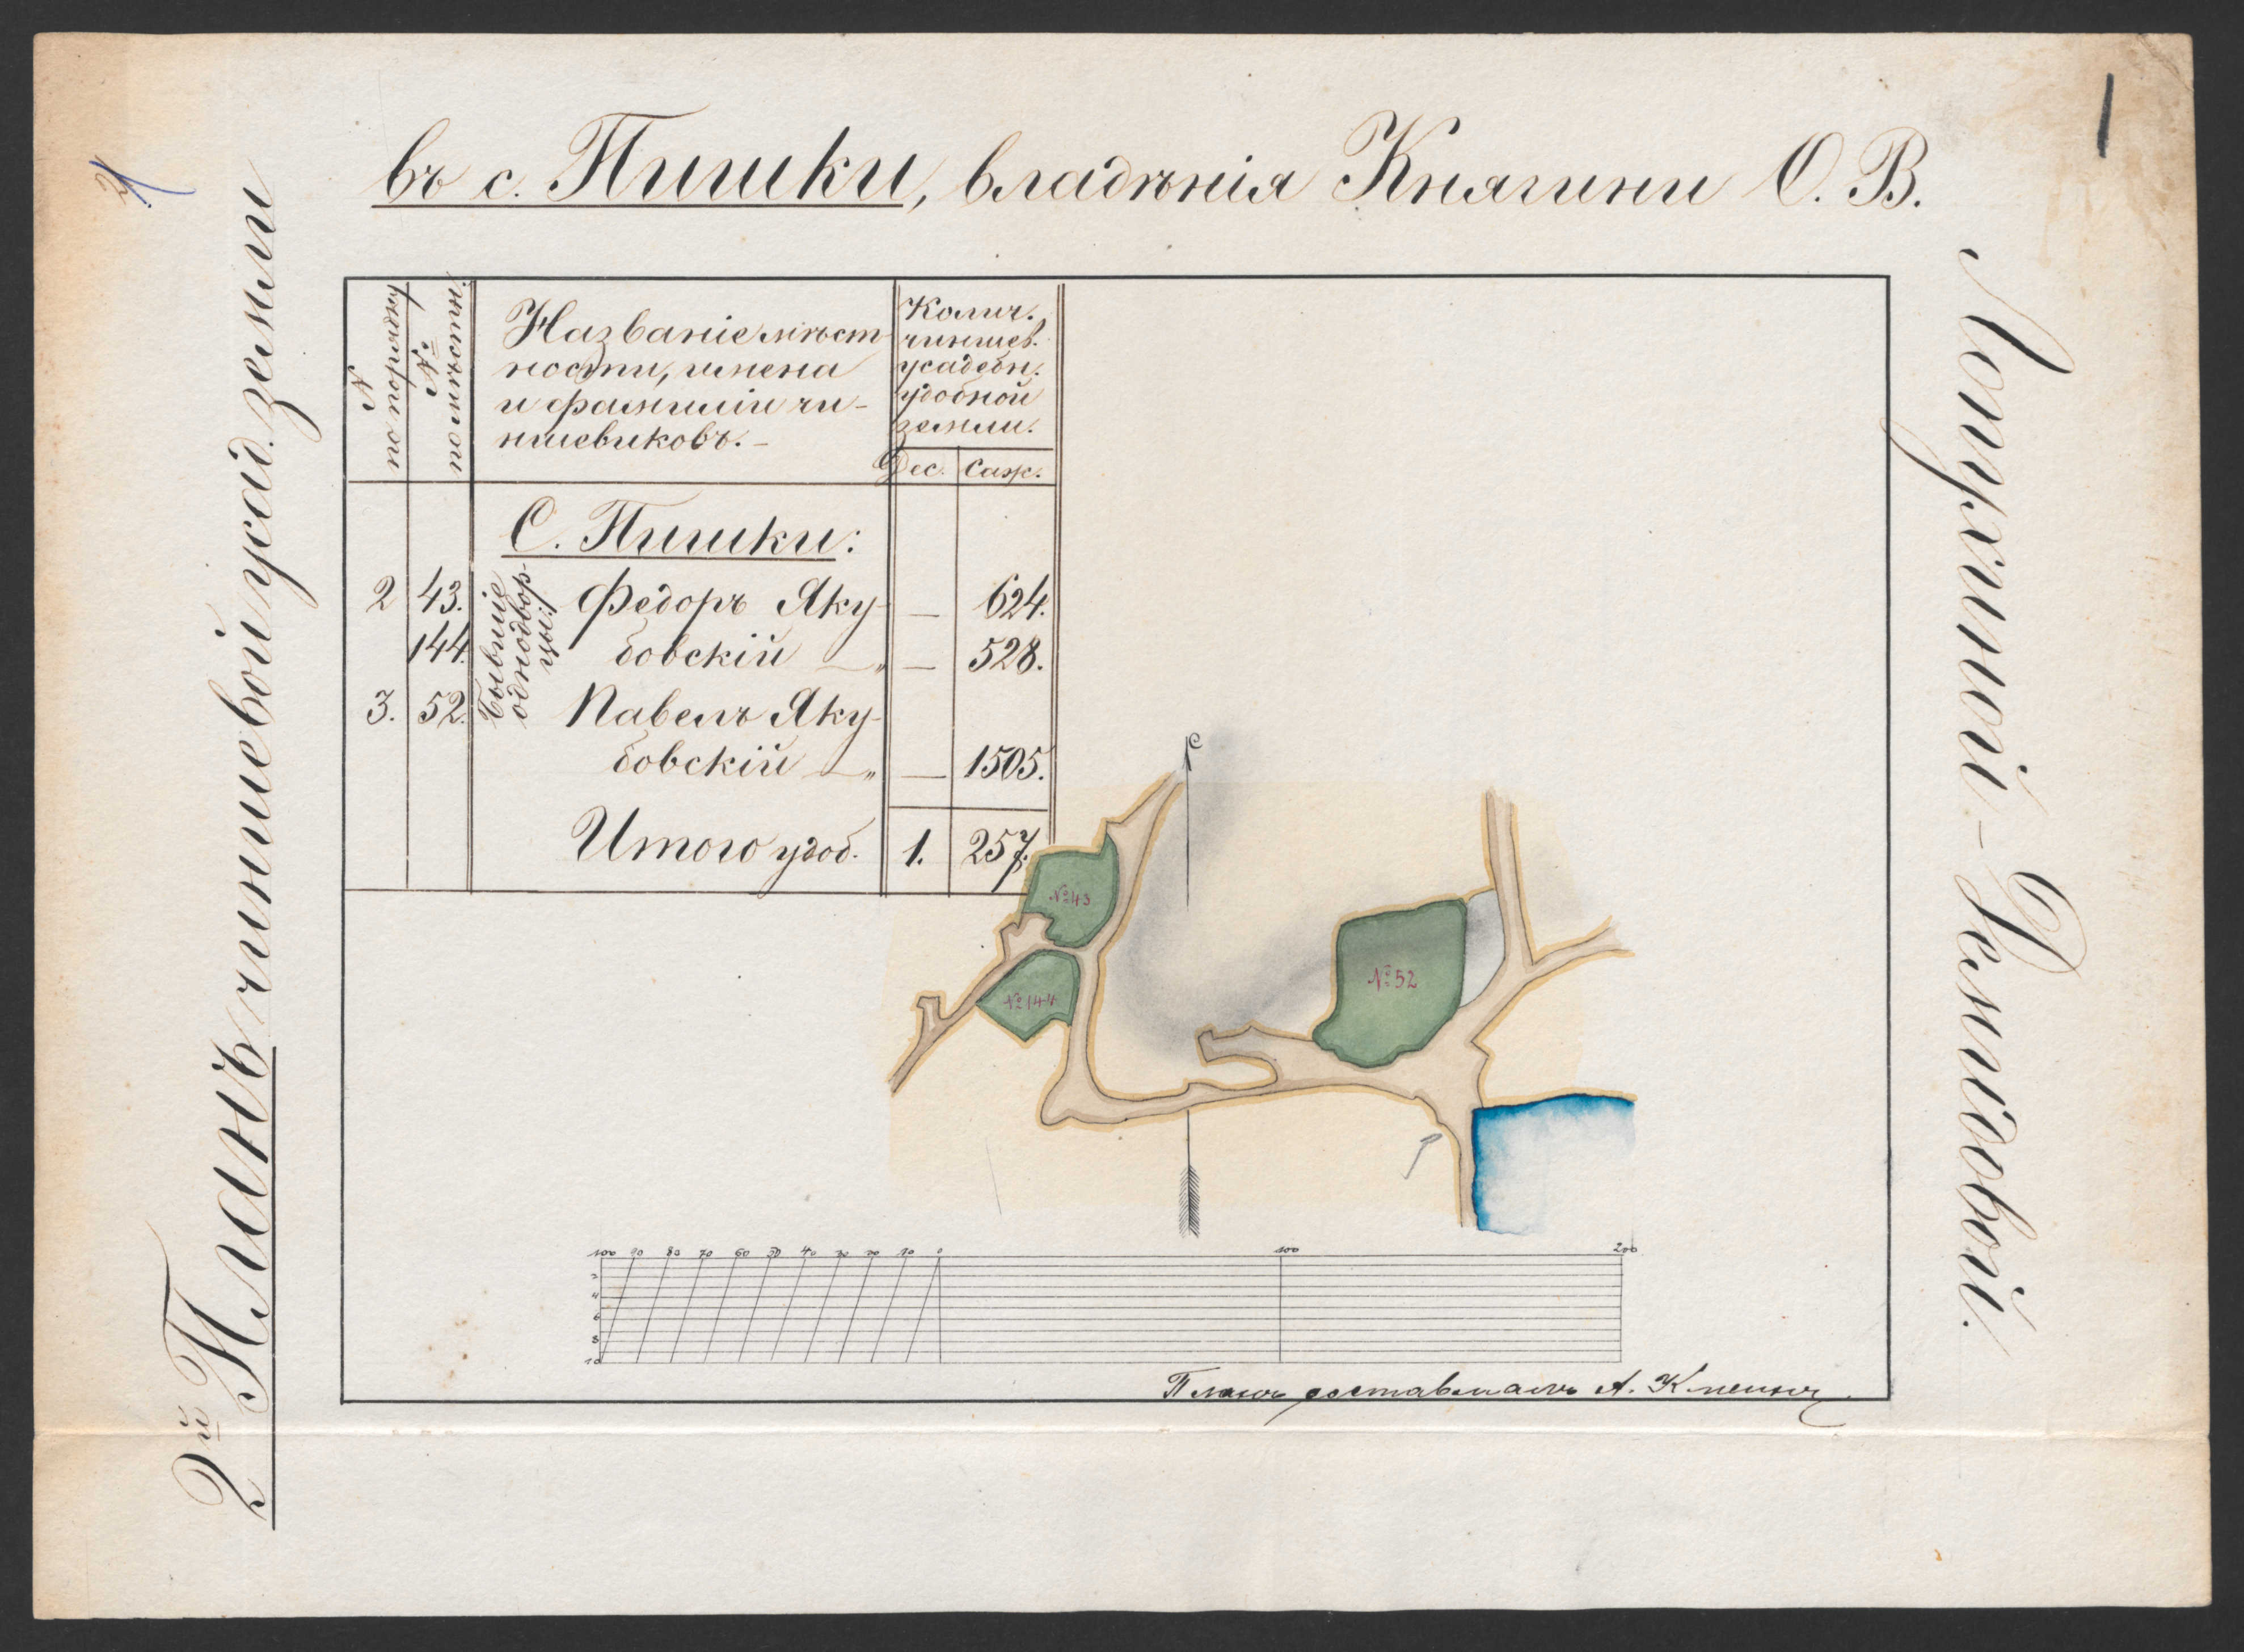 2й Планъ чиншевой усад. земли
въ с. Пишки, владѣнія Княгини О. В.
Лопухиной-Демидовой.
1
N по порядку
№ по мѣстн.
Названіе мѣст
ности, имена
и фамиліи чи-
ншевиковъ.-
Колич.
чиншев.
усадебн.
удобной
земли.
Дес. Саж.
С. Пишки:
Бывшіе однодвор-
цы:
2 43. Федоръ Яку- — 624.
144. бовскій —„ — 528.
3. 52. Павелъ Яку-
бовскій —„ — 1505.
Итого удоб. 1. 257.
С
№43
№144
№52
100 90 80 70 60 50 40 30 20 10 0 100 200
2
4
6
8
10
Планъ составлялъ А.